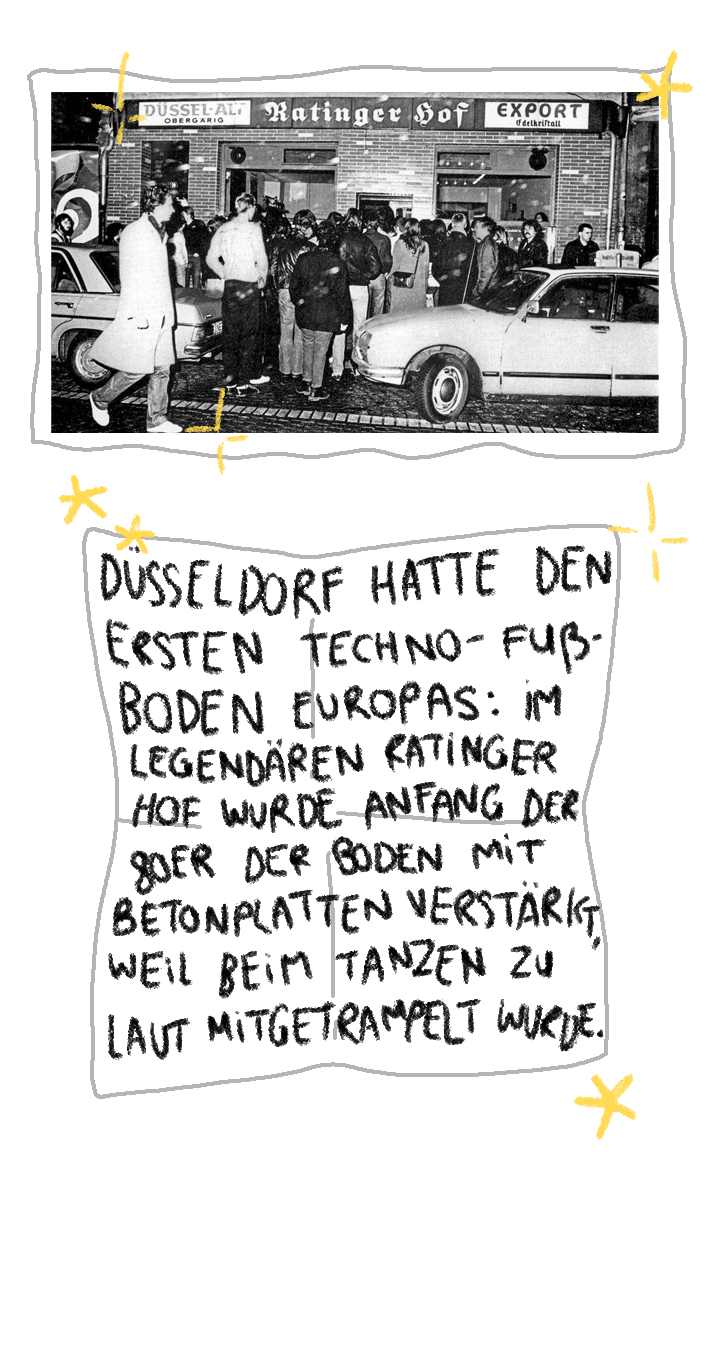 DÜSSEL-ALT
OBERGÄRIG
Ratinger Hof
EXPORT
Edelkristall
DÜSSELDORF HATTE DEN
ERSTEN TECHNO-FUẞ-
BODEN EUROPAS: IM
LEGENDÄREN RATINGER
HOF WURDE ANFANG DER
80ER DER BODEN MIT
BETONPLATTEN VERSTÄRKT,
WEIL BEIM TANZEN ZU
LAUT MITGETRAMPELT WURDE.